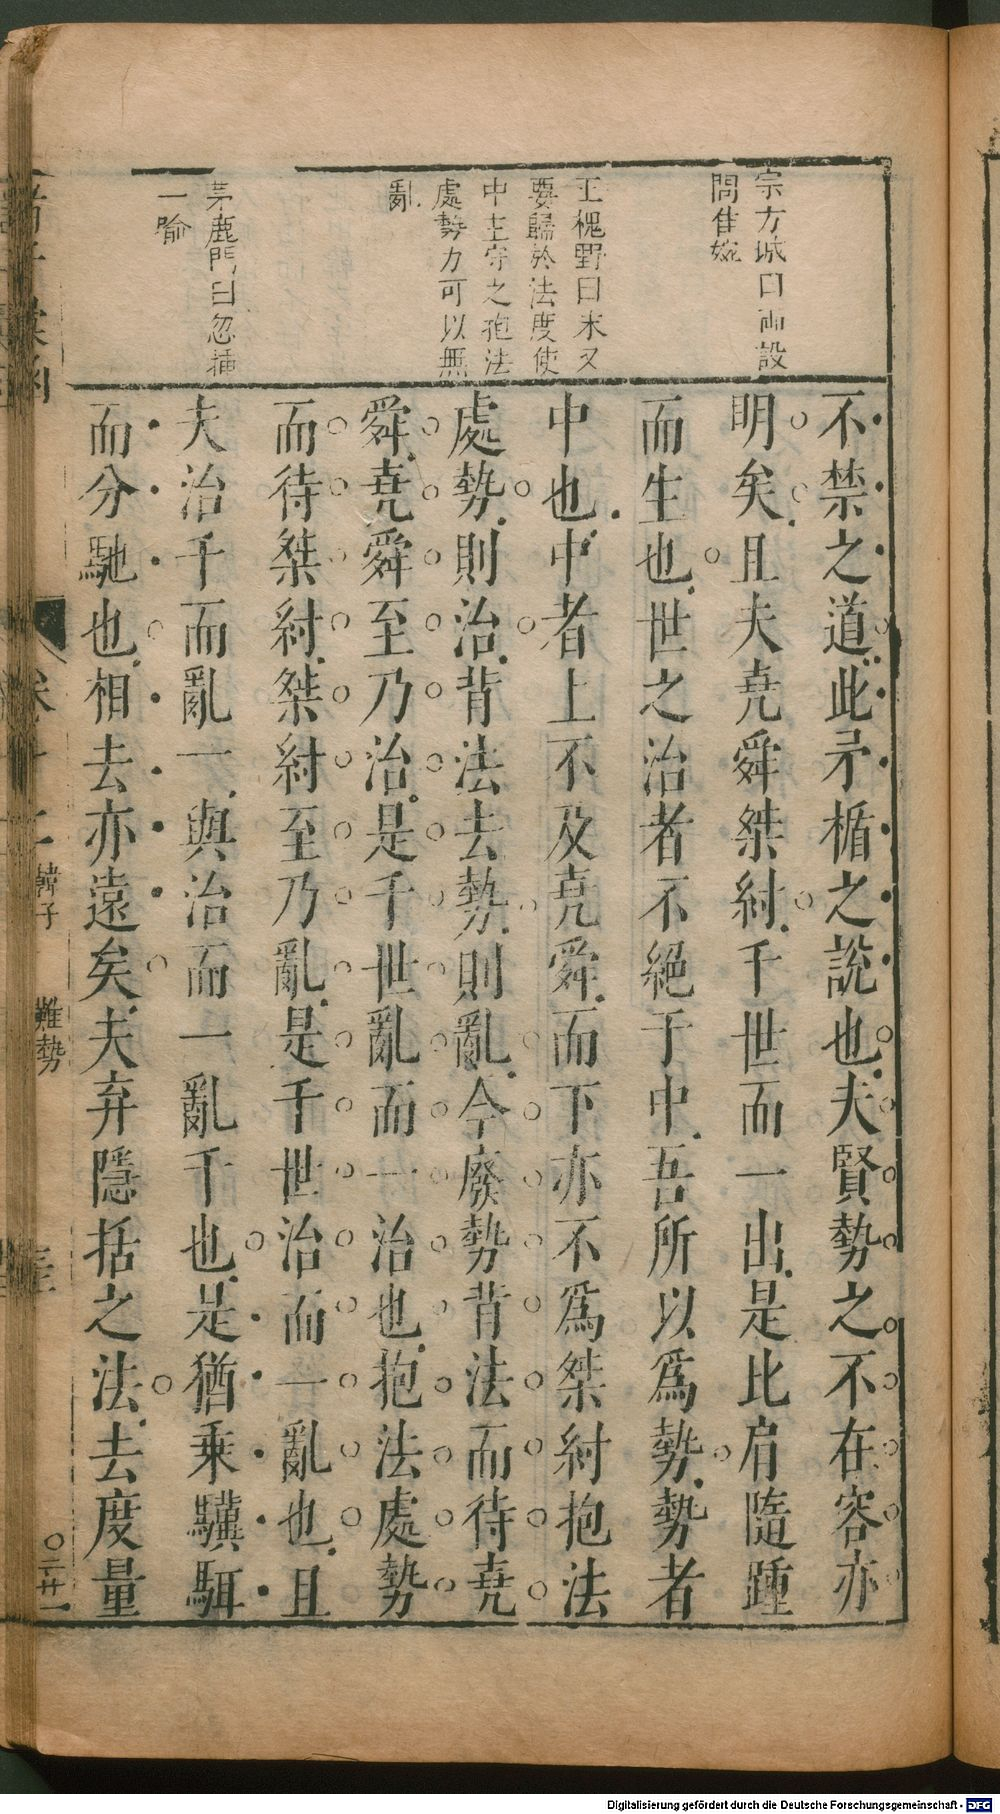 宗方城曰兩設
問隹婉
王槐野曰末又
要歸於法度使
中主守之抱法
處勢力可以無
亂
茅鹿門曰忽揷
一喻
不禁之道此矛楯之說也夫賢勢之不在容亦
明矣且夫堯舜桀紂千世而一出是比肩隨踵
而生也世之治者不絕于中吾所以爲勢勢者
中也中者上不及堯舜而下亦不爲桀紂抱法
處勢則治背法去勢則亂今廢勢背法而待堯
舜堯舜至乃治是千世亂而一治也抱法處勢
而待桀紂桀紂至乃亂是千世治而一亂也且
夫治千而亂一與治而一亂千也是猶乘驥駬
而分馳也相去亦遠矣夫弃隱括之法去度量
卷十二
韓子
難勢
Digitalisierung gefördert durch die Deutsche Forschungsgemeinschaft - DFG